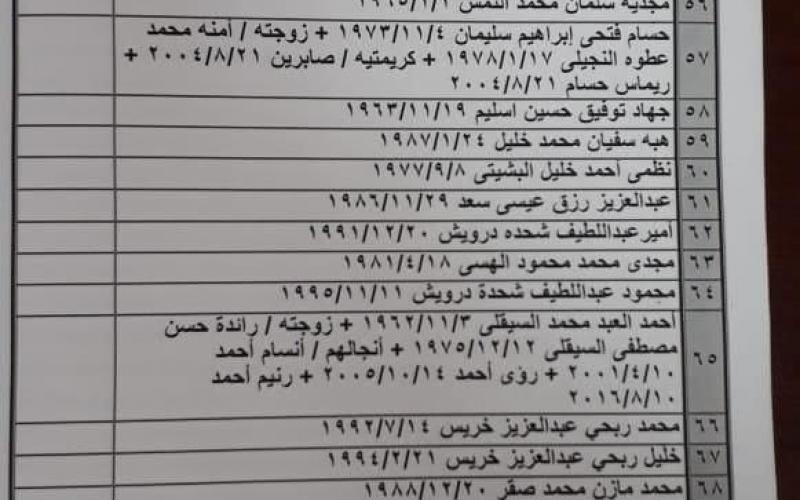 ٥٦ مجدية سلمان محمد النمس ١٩٦٥/١/١
حسام فتحى إبراهيم سليمان ١٩٧٣/١١/٤ + زوجته / أمنه محمد
٥٧ عطوه النجيلى ١٩٧٨/١/١٧ + كريمتيه / صابرين ٢٠٠٤/٨/٢١ +
ريماس حسام ٢٠٠٤/٨/٢١
٥٨ جهاد توفيق حسين اسليم ١٩٦٣/١١/١٩
٥٩ هبه سفيان محمد خليل ١٩٨٧/١/٢٤
٦٠ نظمى أحمد خليل البشيتى ١٩٧٧/٩/٨
٦١ عبدالعزيز رزق عيسى سعد ١٩٨٦/١١/٢٩
٦٢ اميرعبداللطيف شحده درويش ١٩٩١/١٢/٢٠
٦٣ مجدى محمد محمود الهسى ١٩٨١/٤/١٨
٦٤ محمود عبداللطيف شحدة درويش ١٩٩٥/١١/١١
احمد العبد محمد السيقلى ١٩٦٢/١١/٣ + زوجته / رائدة حسن
مصطفى السيقلى ١٩٧٥/١٢/١٢ + أنجالهم / أنسام أحمد
٦٥ ٢٠٠١/٤/١٠ + رؤى أحمد ٢٠٠٥/١٠/١٤ + رنيم أحمد
٢٠١٦/٨/١٠
٦٦ محمد ربحي عبدالعزيز خريس ١٩٩٢/٧/١٤
٦٧ خليل ربحي عبدالعزيز خريس ١٩٩٤/٢/٢١
٦٨ محمد مازن محمد صقر ١٩٨٨/١٢/٢٠